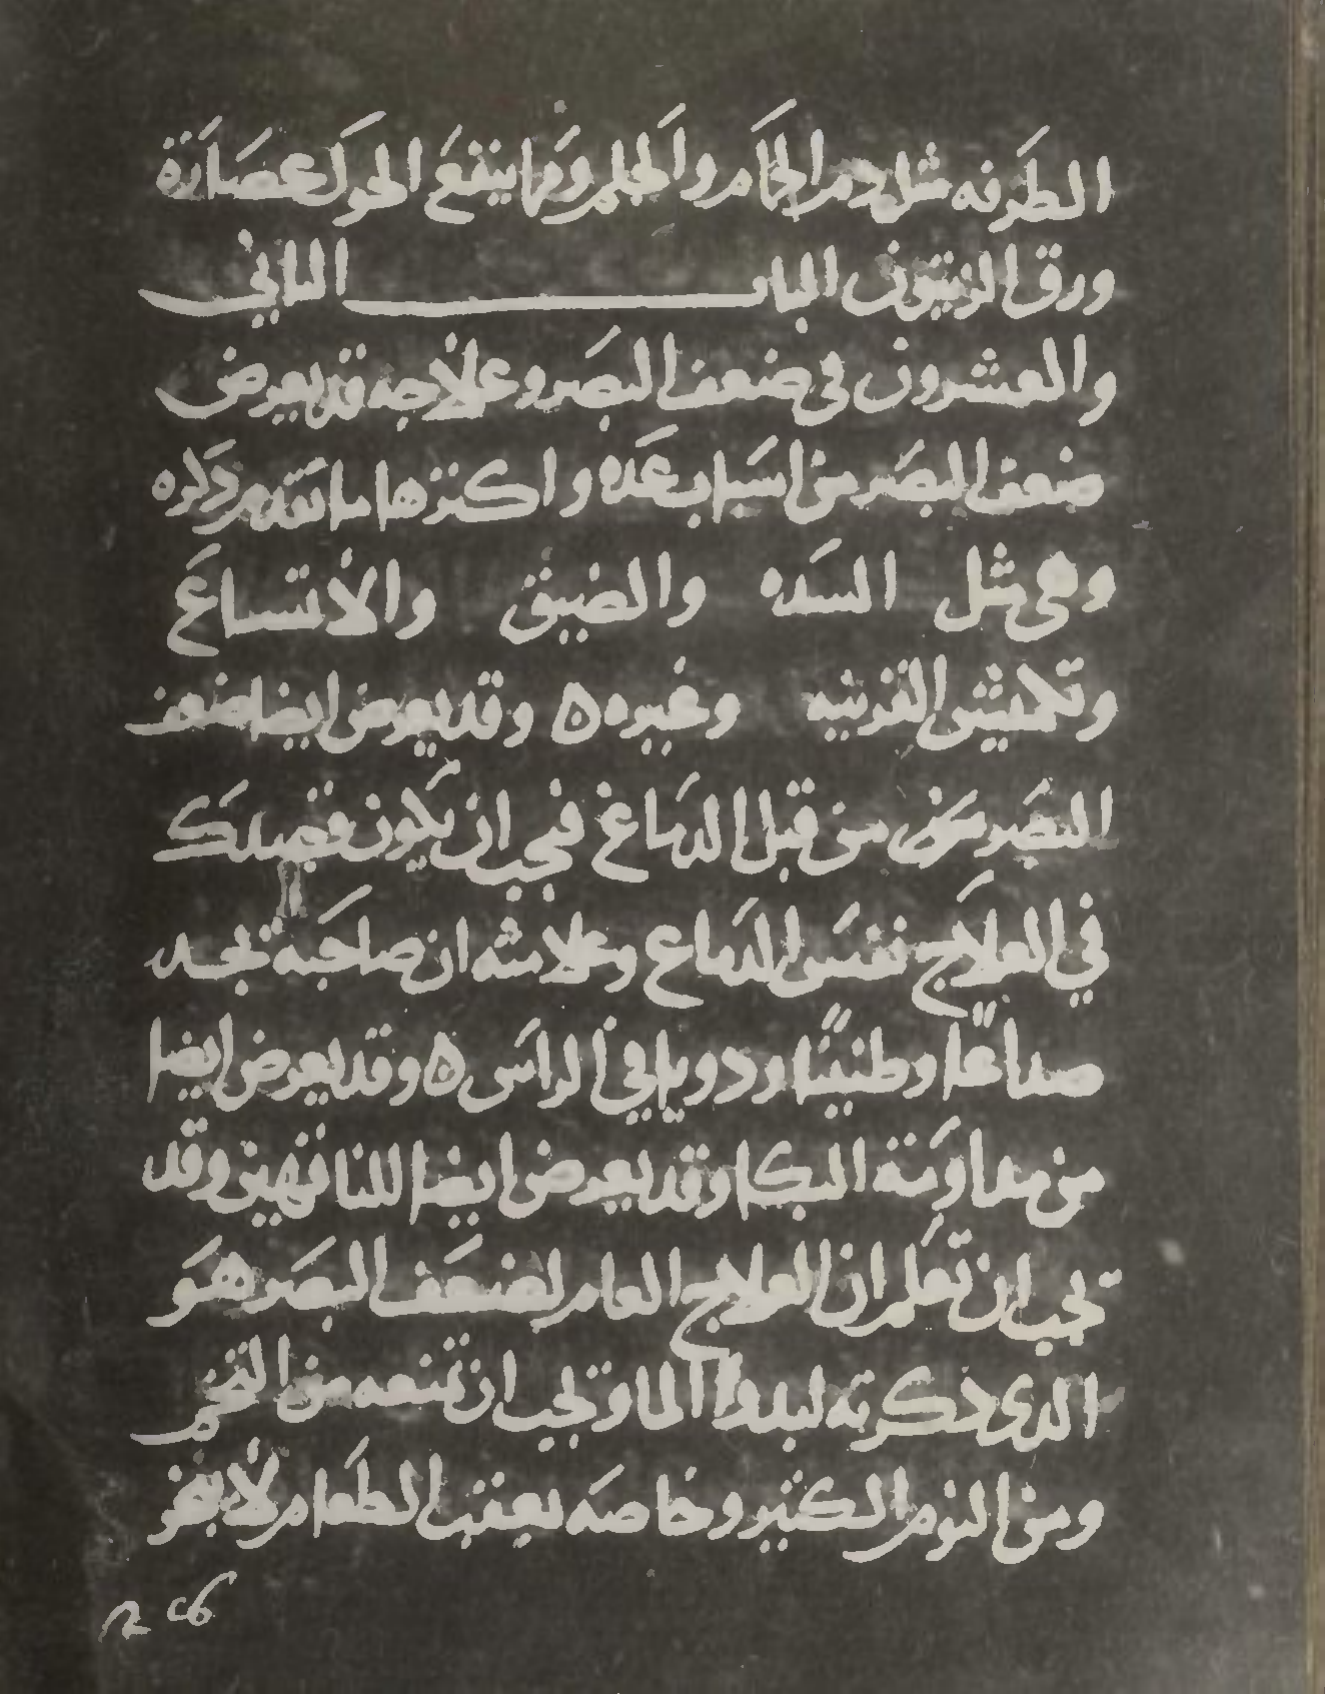 الطرفه مثل دم الحمام والحلم ومما ينفع الحول عصارة
ورق الزيتون الباب الثاني
والعشرون في ضعف البصر وعلاجه قد يعرض
ضعف البصر من اسباب عده واكثرها ما تقدم ذكره
وهى مثل السده والضيق والاتساع
القرنيه وغيره ه وقد يعرض ايضا ضعف
البصر من قبل الدماغ فيجب ان يكون قصدك
في العلاج نفس الدماغ وعلامته ان صاحبه يجد
صداعًا وطنينًا ودويا في الراس ه وقد يعرض ايضا
من مداومة البكا وقد يعرض ايضا للناقهين وقد
يجب ان تعلم ان العلاج العام لضعف البصر هو
الدى ذكرته لبدوا الما ويجب ان تمنعه من التخم
ومن النوم الكثير وخاصه بعقب الطعام